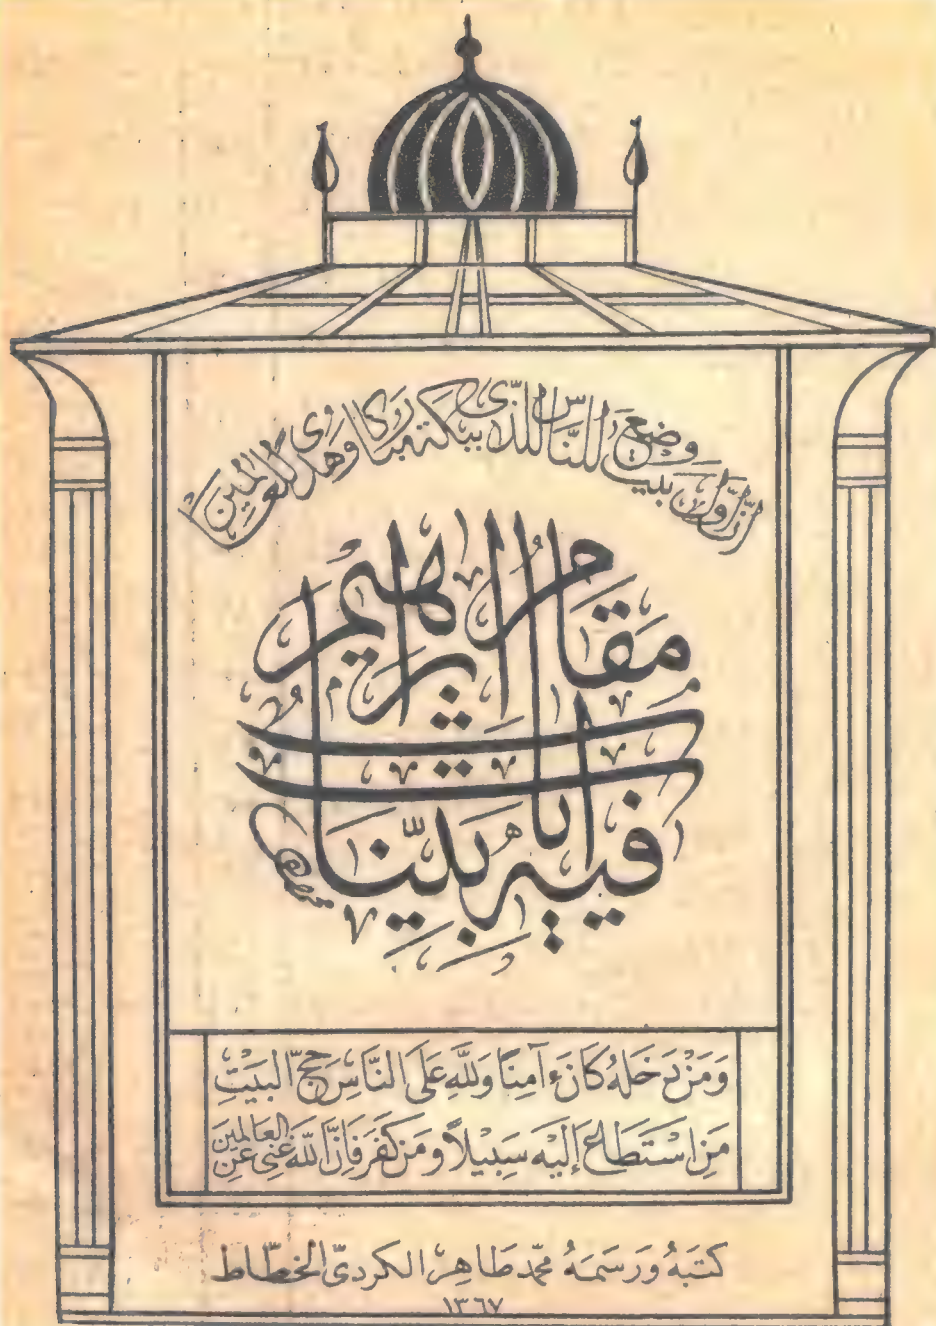 إِنَّ أَوَّلَ بَيْتٍ وُضِعَ لِلنَّاسِ لَلَّذِى بِبَكَّةَ مُبَارَكًا وَهُدًى لِلْعَالَمِينَ
فِيهِ آيَاتٌ بَيِّنَاتٌ
مَقَامُ إِبْرَاهِيمَ
وَمَنْ دَخَلَهُ كَانَ ءَامِنًا وَلِلَّهِ عَلَى النَّاسِ حِجُّ الْبَيْتِ
مَنِ اسْتَطَاعَ إِلَيْهِ سَبِيلًا وَمَنْ كَفَرَ فَإِنَّ اللَّهَ غَنِىٌّ عَنِ الْعَالَمِينَ
كتبهُ ورسمهُ محمد طاهر الكردىّ الخطّاط
١٣٦٧